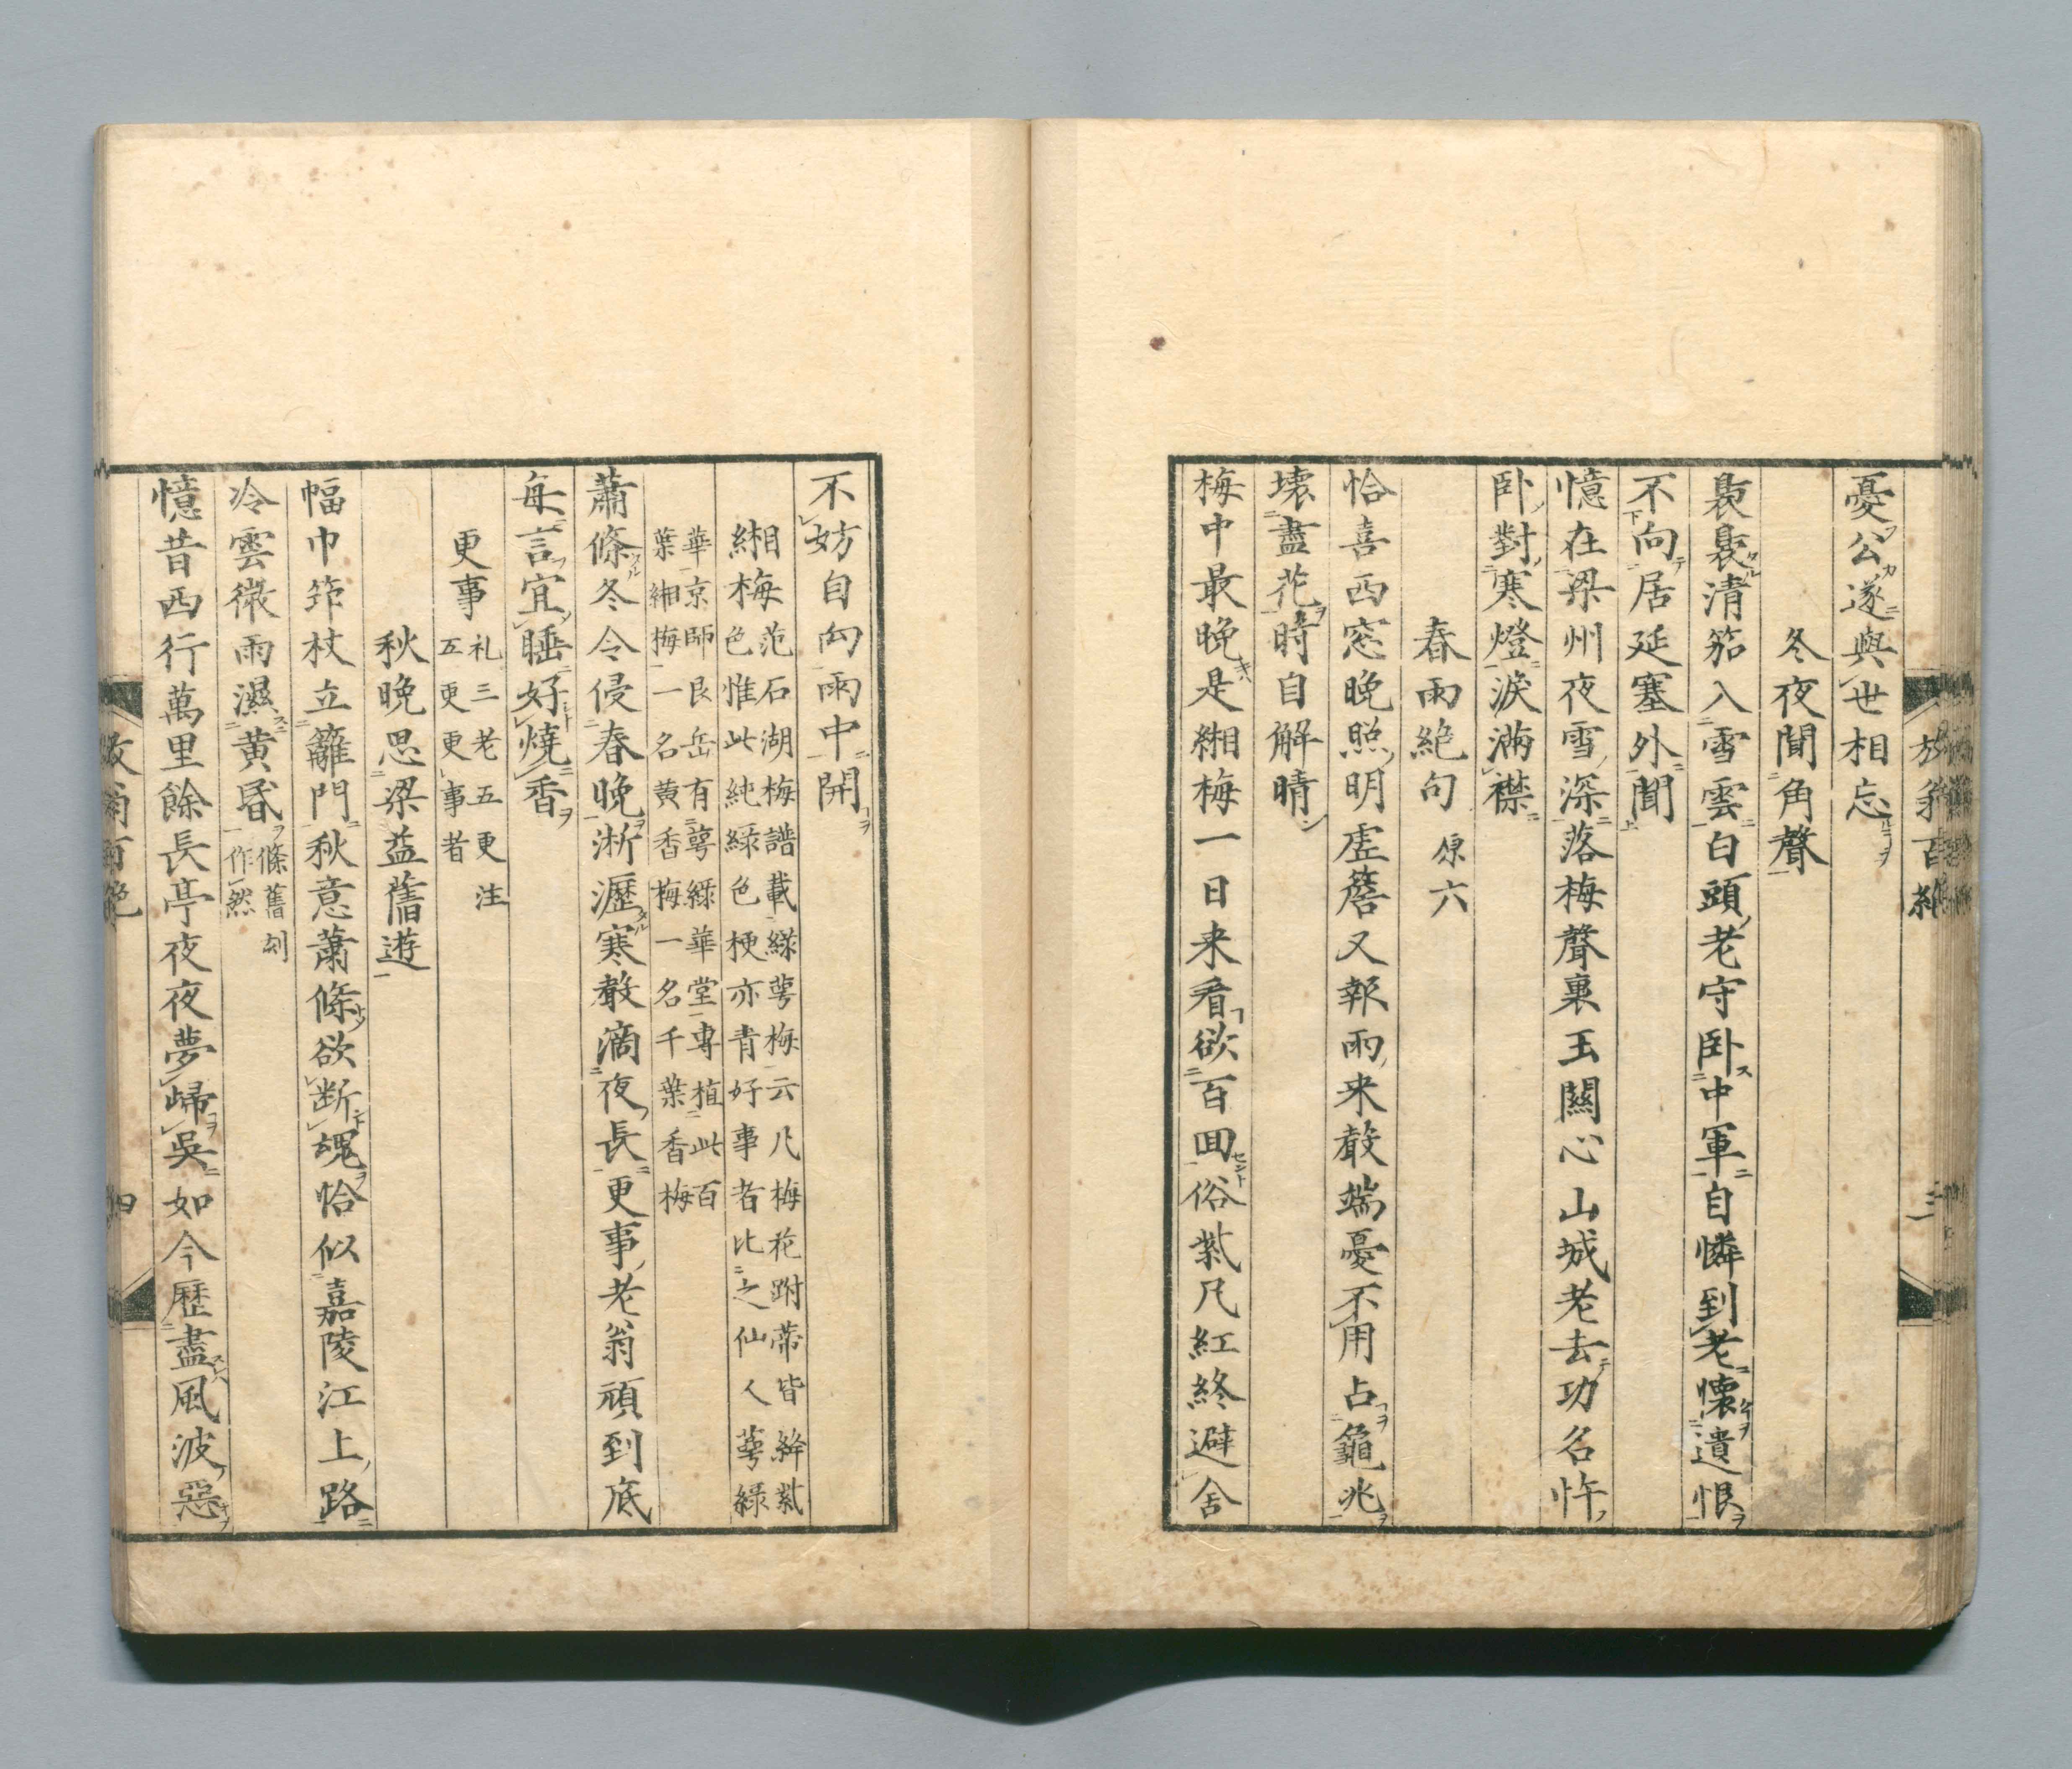 放翁百絶 三
憂公遂與世相忘
冬夜聞角聲
裊裊清笳入雪雲白頭老守卧中軍自憐到老懐遺恨
不向居延塞外聞
憶在梁州夜雪深落梅聲裏玉關心山城老去功名忤
卧對寒燈淚滿襟
春雨絶句 原六
恰喜西窓晩照明虚簷又報雨来聲端憂不用占龜兆
壊盡花時自解晴
梅中最晩是緗梅一日来看欲百回俗紫凡紅終避舎
不妨自向雨中開
緗梅 范石湖梅譜載緑萼梅云凡梅花跗蔕皆絳紫
色惟此純緑色梗亦青好事者比之仙人萼緑
華京師艮岳有萼緑華堂專植此百
葉緗梅一名黄香梅一名千葉香梅
蕭條冬令侵春晩淅瀝寒聲滴夜長更事老翁頑到底
毎言宜睡好燒香
更事 礼三老五更注
五更更事者
秋晩思梁益舊遊
幅巾筇杖立籬門秋意蕭條欲断魂恰似嘉陵江上路
冷雲微雨濕黄昏 條舊刻
一作然
憶昔西行萬里餘長亭夜夜夢歸吳如今歷盡風波惡
放翁百絶 四